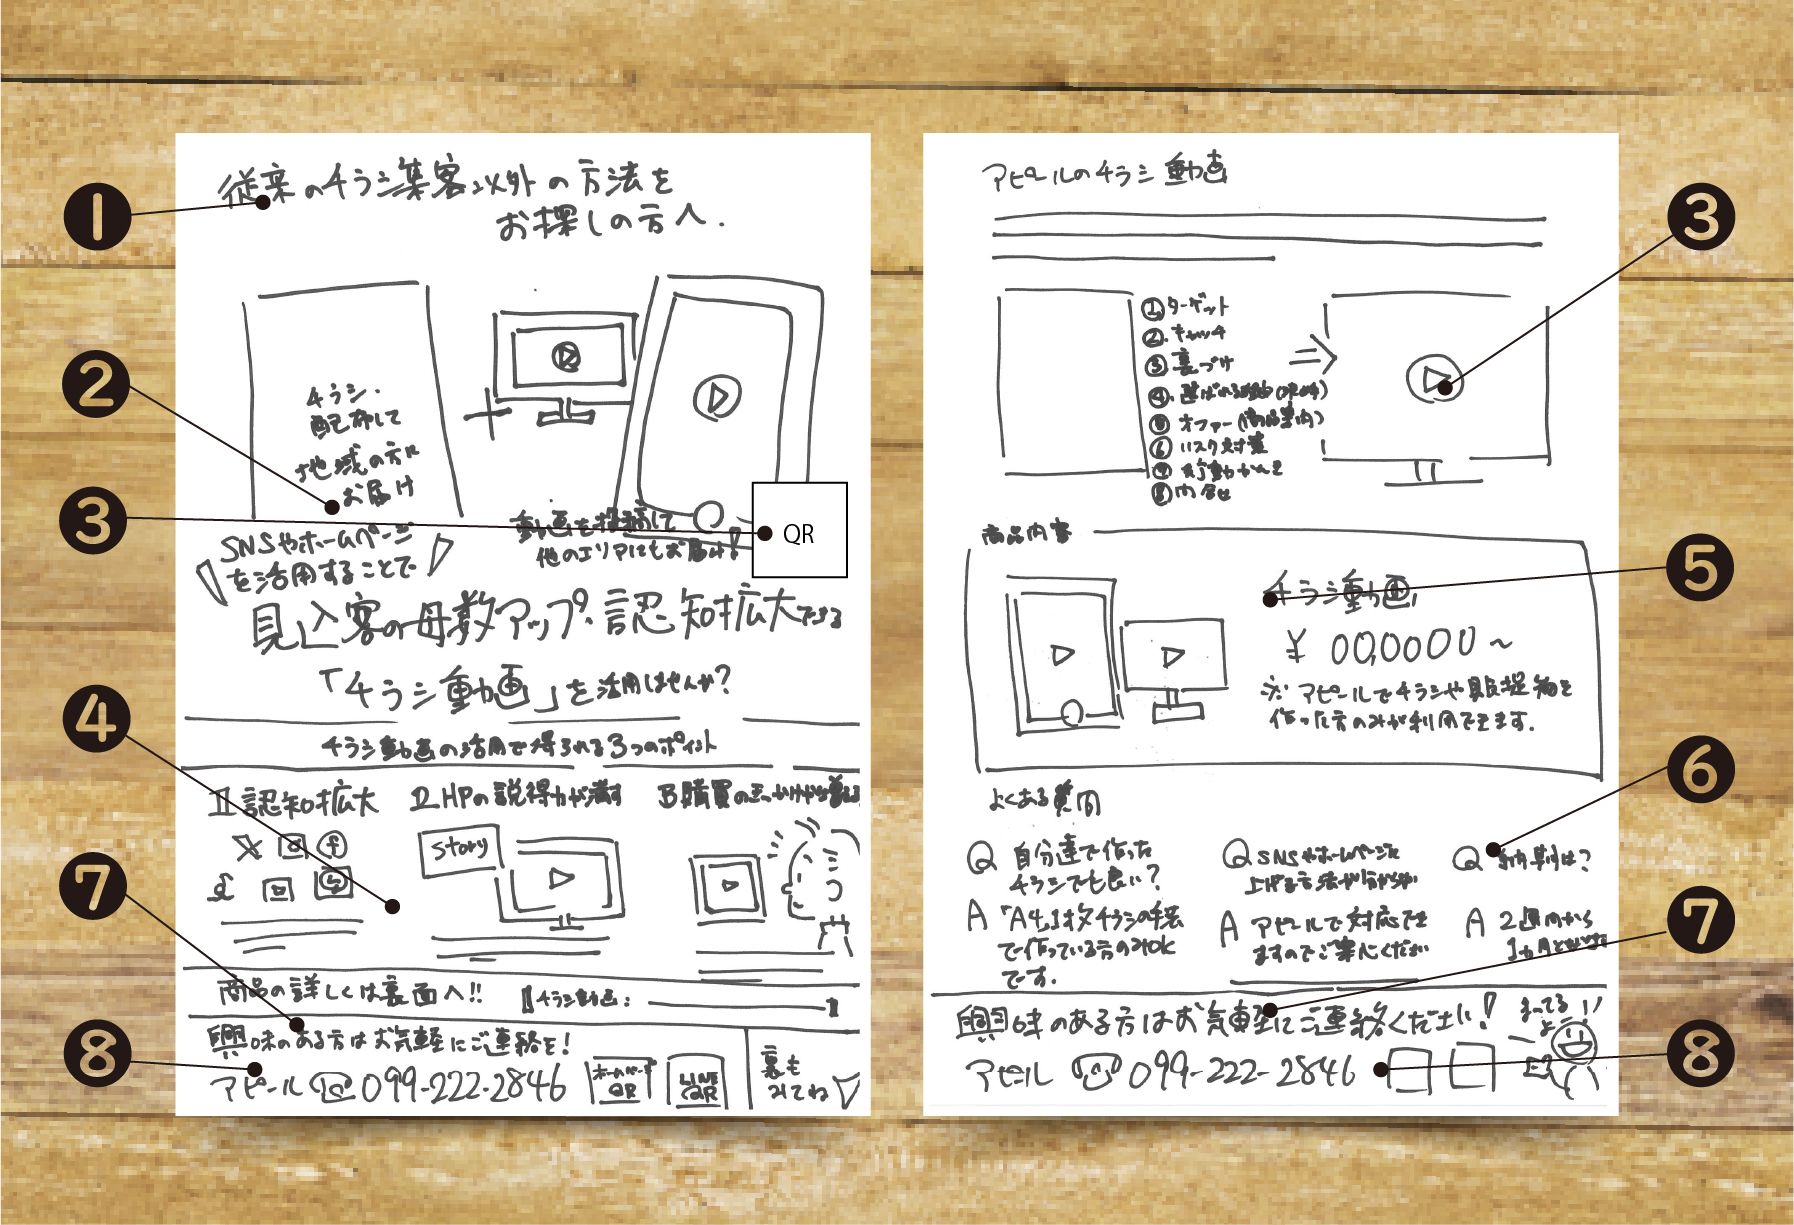 従来のチラシ集客以外の方法を
お探しの方へ.
チラシ.
配布して
地域の方に
お届け
動画を投稿して
他のエリアにもお届け!
QR
SNSやホームページ
を活用することで
見込客の母数アップ・認知拡大できる
「チラシ動画」を活用しませんか?
チラシ動画の活用で得られる3つのポイント
1 認知拡大
2 HPの説得力が満す
3 購買のきっかけ
Story
商品の詳しくは裏面へ!!
チラシ動画:
興味のある方はお気軽にご連絡を!
アピール 099-222-2846
ホームページ
QR
LINE
QR
裏も
みてね
アピールのチラシ動画
① ターゲット
②. キャッチ
③ 裏づけ
④. 選ばれる理由
⑤ オファー(商品案内)
⑥ リスク対策
⑦ 行動かんき
⑧ 問合せ
商品内容
チラシ動画
¥ 00,0000~
※アピールでチラシや販促物を
作った方のみが利用できます.
よくある質問
Q 自分達で作った
チラシでも良い?
A 「A4」1枚チラシの手法
で作っている方のみOK
です.
Q SNSやホームページに
上げる方法が分からない
A アピールで対応でき
ますのでご安心ください
Q 納期は?
A 2週間から
1カ月
興味のある方はお気軽にご連絡ください!
まってる
よ!!
アピール 099-222-2846
1
2
3
4
7
8
3
5
6
7
8